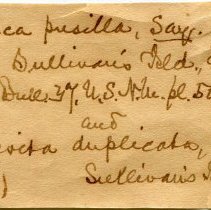 ca pusilla, Say.
Sullivan's Isld.,
Bull. 37, U.S.N.M. pl. 50
and
duplicata,
Sullivan's I
)